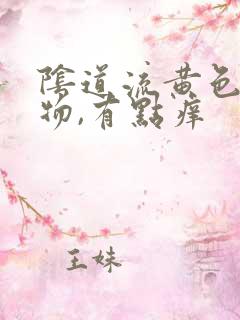 陰道流黄色
物,有點痒
王妹